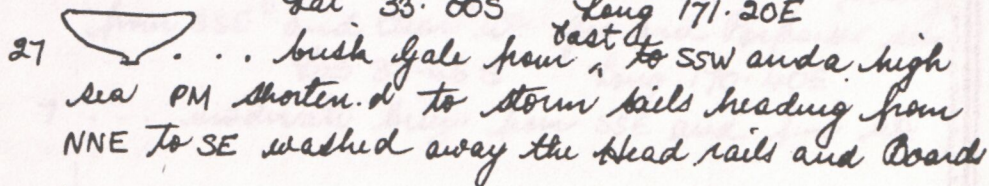 Lat 33.00S Long 171.20E
27 . . . brisk Gale from East to SSW and a high
sea PM shorten.d to storm sails heading from
NNE to SE washed away the Head rails and Boards